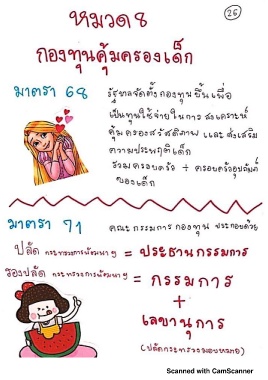 26
หมวด 8
กองทุนคุ้มครองเด็ก
มาตรา 68 รัฐบาลจัดตั้งกองทุนขึ้นเพื่อ
เป็นทุนใช้จ่ายในการ สงเคราะห์
คุ้มครองสวัสดิภาพ และ ส่งเสริม
ความประพฤติเด็ก
รวมครอบครัว + ครอบครัวอุปถัมภ์
ของเด็ก
มาตรา 71 คณะกรรมการกองทุน ประกอบด้วย
ปลัด กระทรวงการพัฒนาฯ = ประธานกรรมการ
รองปลัด กระทรวงการพัฒนาฯ = กรรมการ
+
เลขานุการ
(ปลัดกระทรวงมอบหมาย)
Scanned with CamScanner